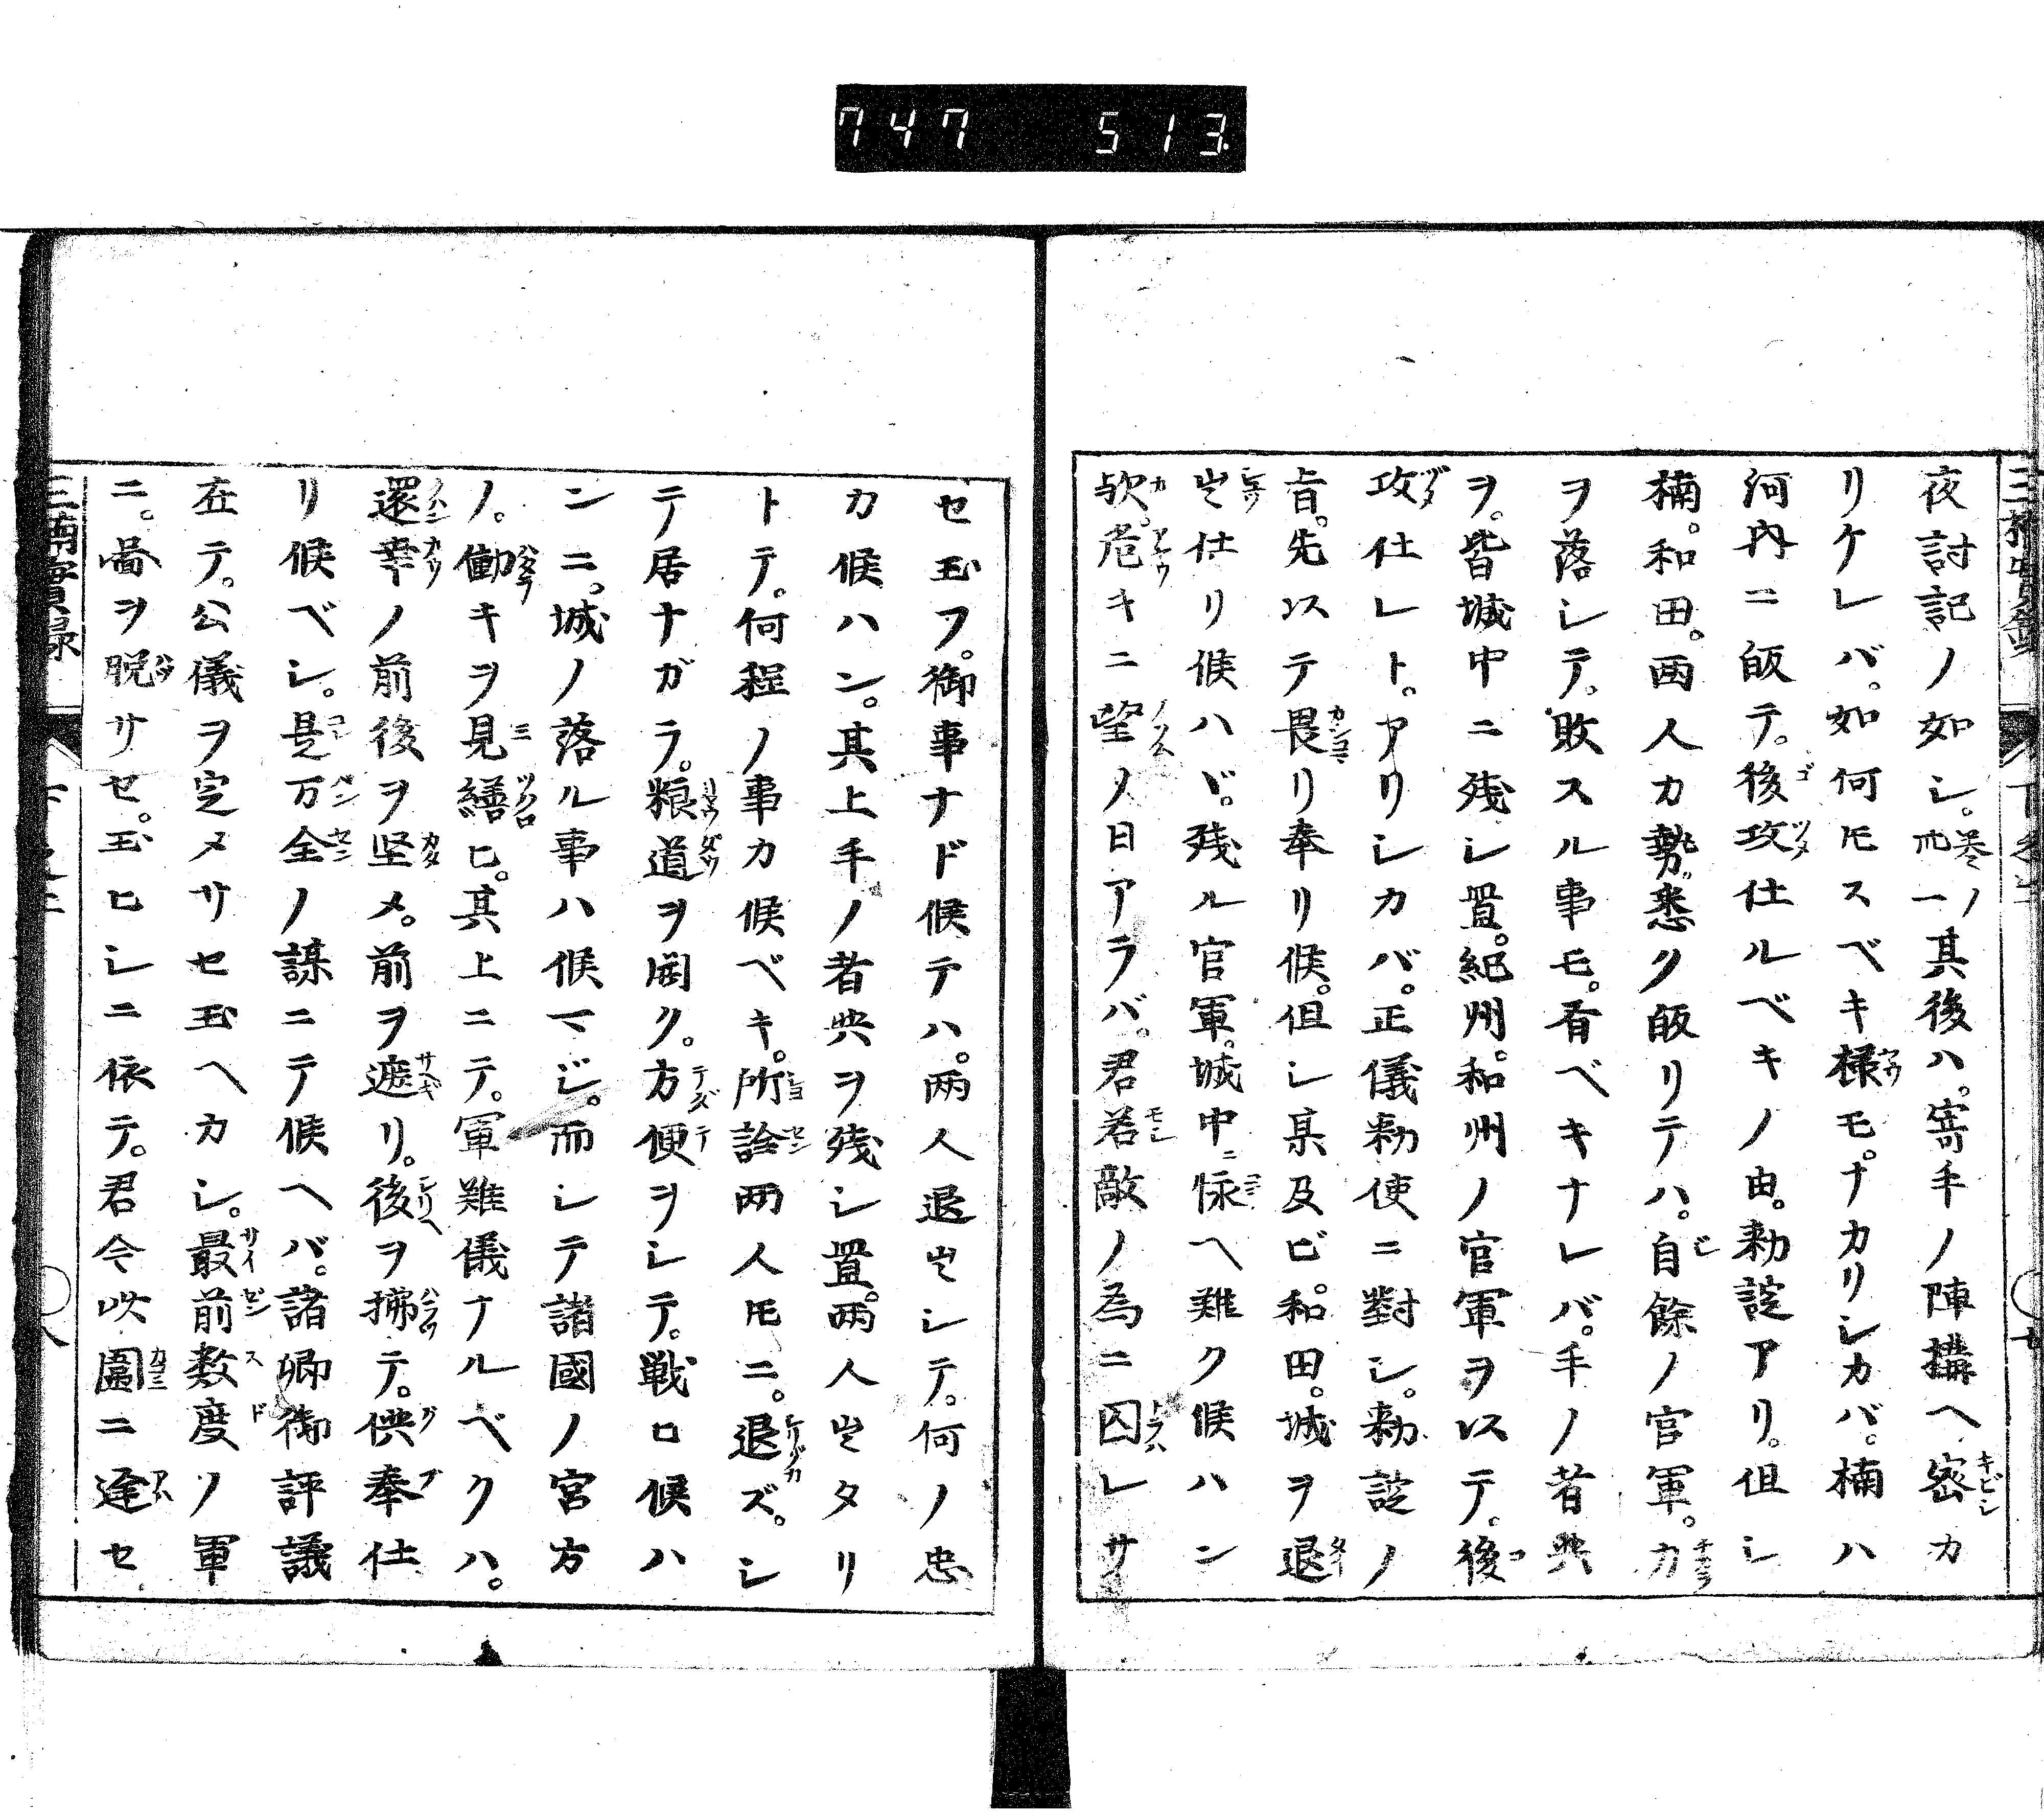 747 513
夜討記ノ如シ。卅巻ノ一其後ハ。寄手ノ陣構ヘ密カ
リケレバ。如何𪜈スベキ様モ。ナカリシカバ。楠ハ
河内ニ皈テ。後攻仕ルベキノ由。勅諚アリ。但シ
楠。和田。両人カ勢。悉ク皈リテハ。自餘ノ官軍。力
ヲ落シテ。敗スル事モ。有ベキナレバ。手ノ者共
ヲ。皆城中ニ残シ置。紀州。和州ノ官軍ヲ以テ。後
攻仕レト。アリシカバ。正儀勅使ニ對シ。勅諚ノ
旨。先以テ畏リ奉リ候。但シ某及ビ。和田。城ヲ退
出仕リ候ハヾ。残ル官軍。城中ニ怺ヘ難ク候ハン
歟。危キニ望ノ日アラバ。君若敵ノ為ニ囚レサ
セ玉フ。御事ナド候テハ。両人退出シテ。何ノ忠
カ候ハン。其上手ノ者共ヲ残シ置。両人出タリ
トテ。何程ノ事カ候ベキ。所詮両人𪜈ニ。退ズ。シ
テ居ナガラ。粮道ヲ開ク。方便ヲシテ。戦ロ候ハ
ンニ。城ノ落ル事ハ候マジ。而シテ諸國ノ宮方
ノ。働キヲ見繕ヒ。其上ニテ。軍難儀ナルベクハ。
還幸ノ前後ヲ堅メ。前ヲ遮リ。後ヲ拂テ。供奉仕
リ候ベシ。是万全ノ謀ニテ候ヘバ。諸卿御評議
在テ。公儀ヲ定メサセ玉ヘカシ。最前数度ノ軍
ニ。啚ヲ脱サセ。玉ヒシニ依テ。君今此圍ニ逢セ